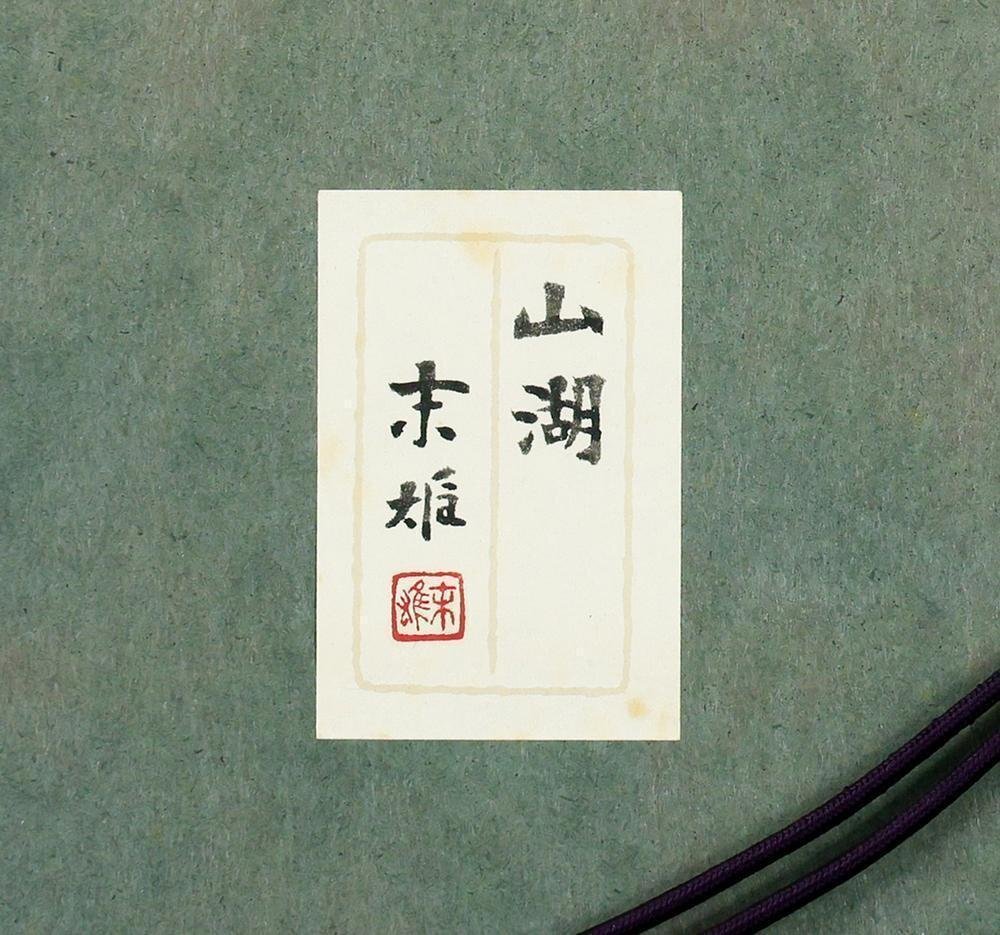 山湖
末雄
末雄